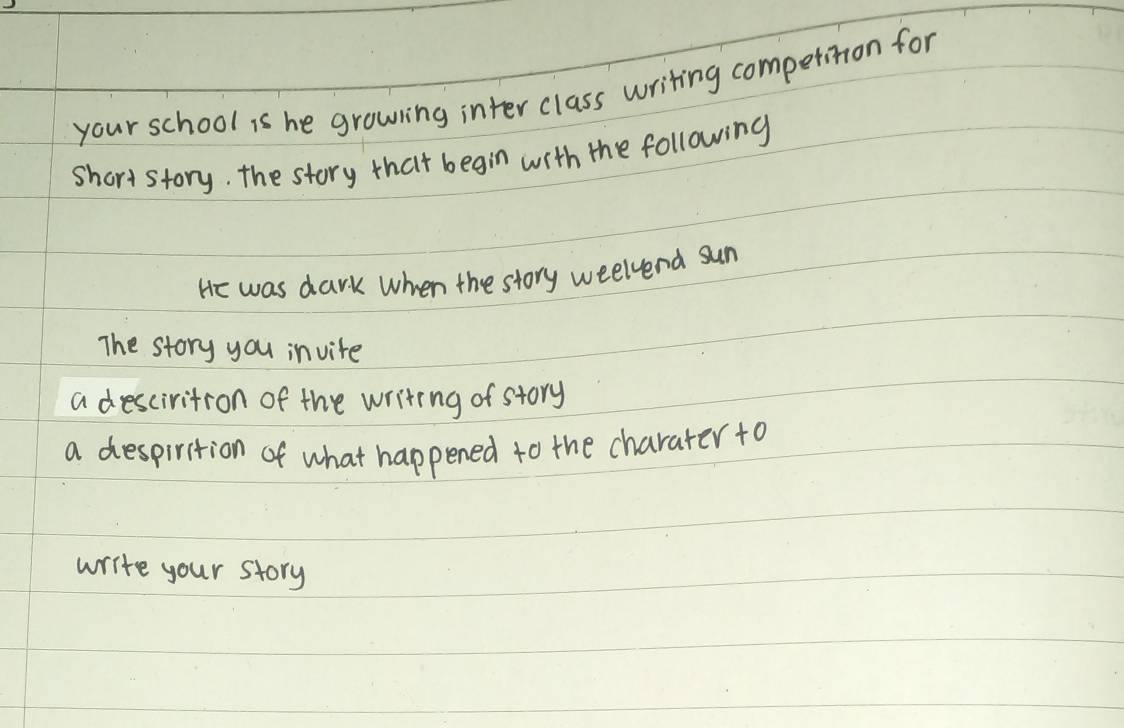 your school is he growing inter class writing competition for
short story. the story that begin with the following
He was dark when the story weekend sun
The story you invite
a descirition of the writing of story
a despirition of what happened to the charater to
write your story